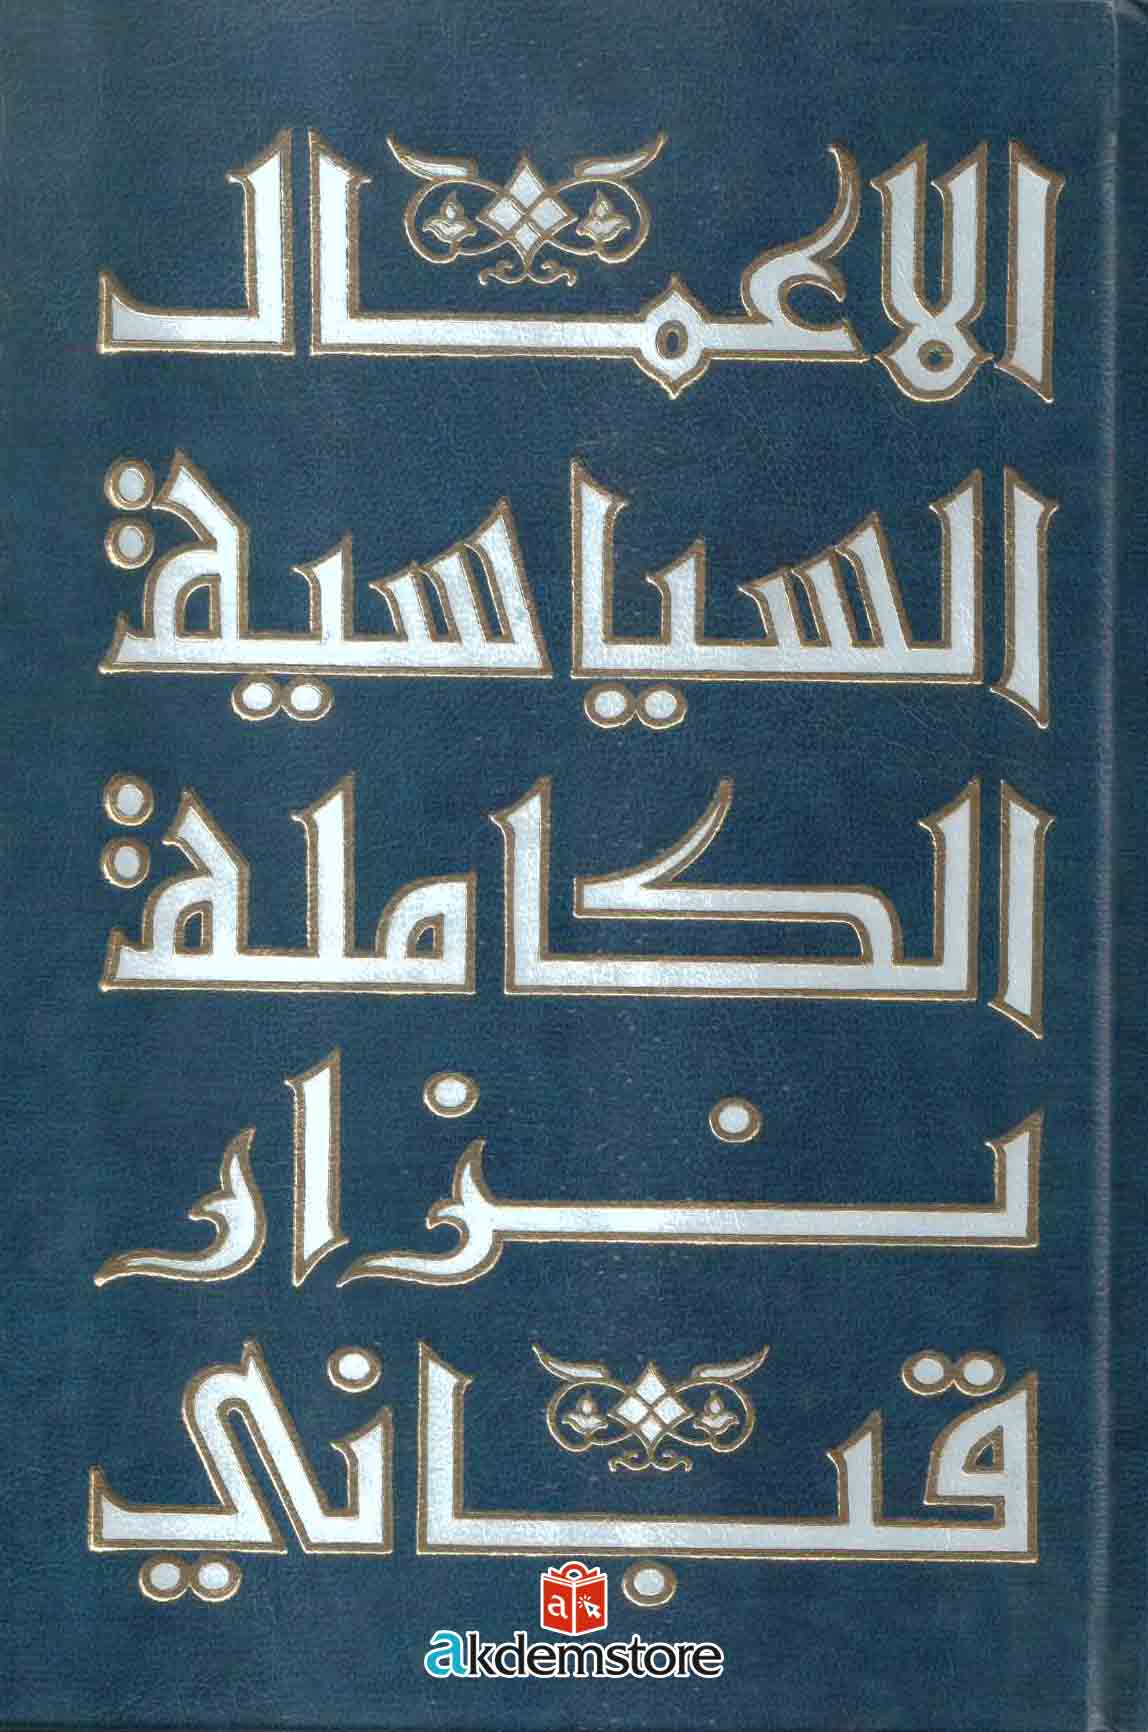 الأعمال
السياسية
الكاملة
نزار
قباني
a
akdemstore